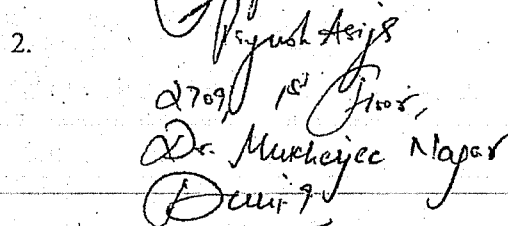 2.
Piyush Asija
2709, 1st Floor,
Dr. Mukherjee Nagar
Delhi-9